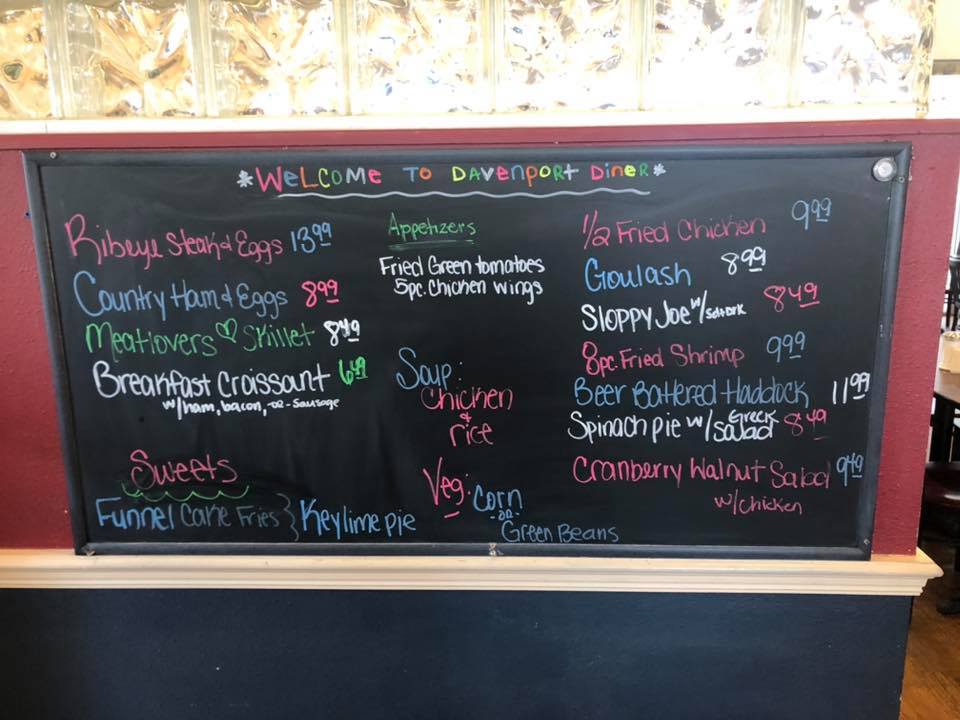 *WELCOME TO DAVENPORT DINER*
Ribeye Steak & Eggs 13.99
Country Ham & Eggs 8.99
Meatlovers ♡ Skillet 8.49
Breakfast Croissant 6.49
w/ham, bacon, -or- Sausage
Sweets
Funnel Cake Fries } Key lime pie
Appetizers
Fried Green tomatoes
5pc. Chicken wings
Soup:
Chicken
&
rice
Veg: Corn
-or-
Green Beans
1/2 Fried Chicken 9.99
Goulash 8.99
Sloppy Joe w/ 8.49
8pc. Fried Shrimp 9.99
Beer Battered Haddock 11.99
Spinach pie w/ Greek Salad 8.49
Cranberry Walnut Salad 9.49
w/Chicken